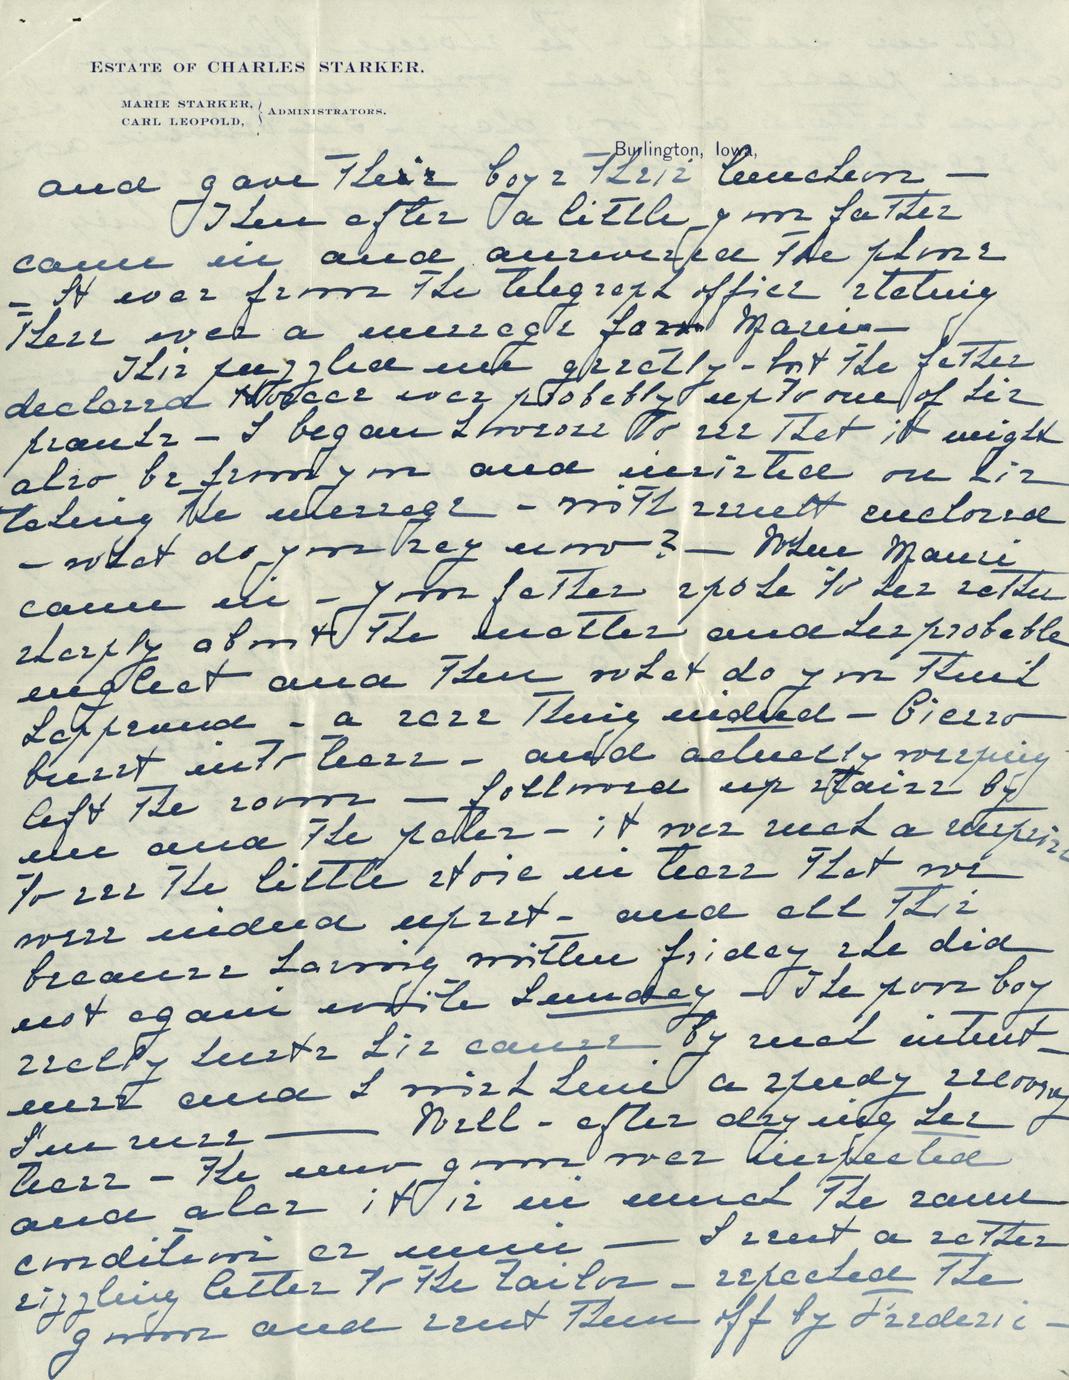 ESTATE OF CHARLES STARKER.
MARIE STARKER,
CARL LEOPOLD,
ADMINISTRATORS.
Burlington, Iowa,
and gave their boys their luncheon —
Then after a little your father
came in and answered the phone
– It was from the telegraph office stating
there was a message for Marie —
This puzzled me greatly – but the father
declared was probably up to one of his
pranks – I began however to see that it might
also be from you and insisted on his
taking the message – with result enclosed
– what do you say now? — When Marie
came in – your father spoke to her rather
sharply about the matter and her probable
neglect and then what do you think
happened – a rare thing indeed –
burst into tears – and actually weeping
left the room — followed up stairs by
me and the pater – it was such a surprise
to see the little stoic in tears that we
were indeed upset – and all this
because having written Friday she did
not again write Sunday – The poor boy
really hurts his cause by such intent-
ness and I wish him a speedy recovery
I'm sure — Well – after drying her
tears – the new gown was inspected
and alas it is in much the same
condition as mine — I sent a rather
sizzling letter to the tailor – repacked the
gown and sent them off by Frederic –